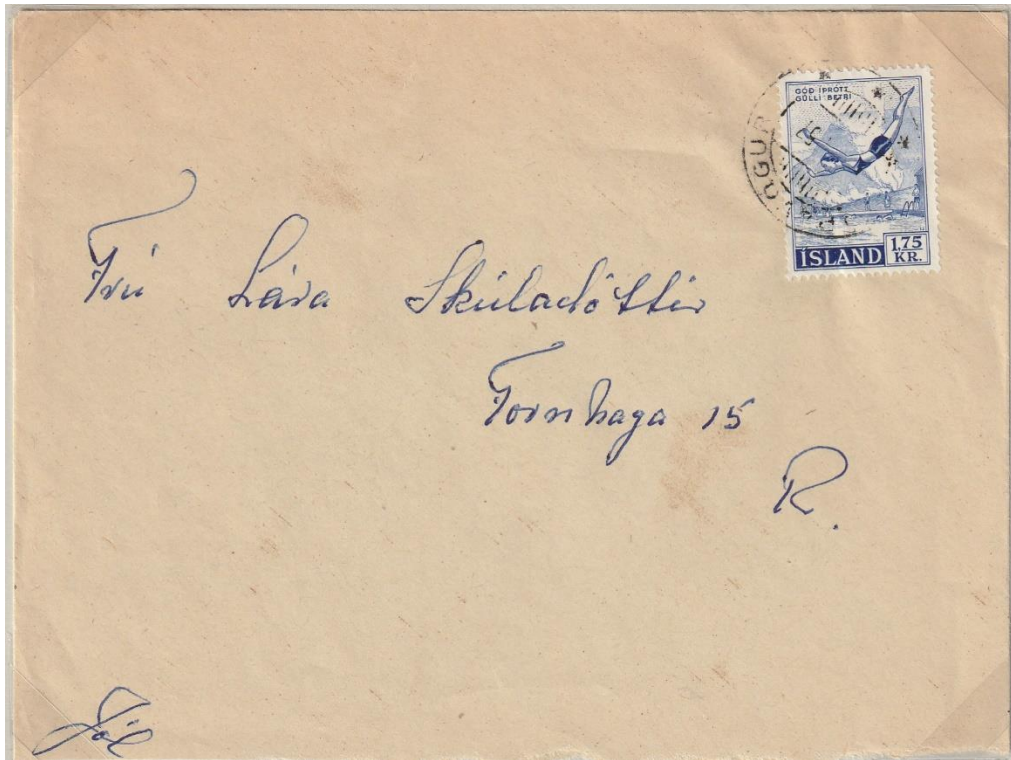 GÓÐ ÍÞRÓTT
GULLI BETRI
ÍSLAND 1,75
KR.
Frú Lára Skúladóttir
Fornhaga 15
R.
Jól